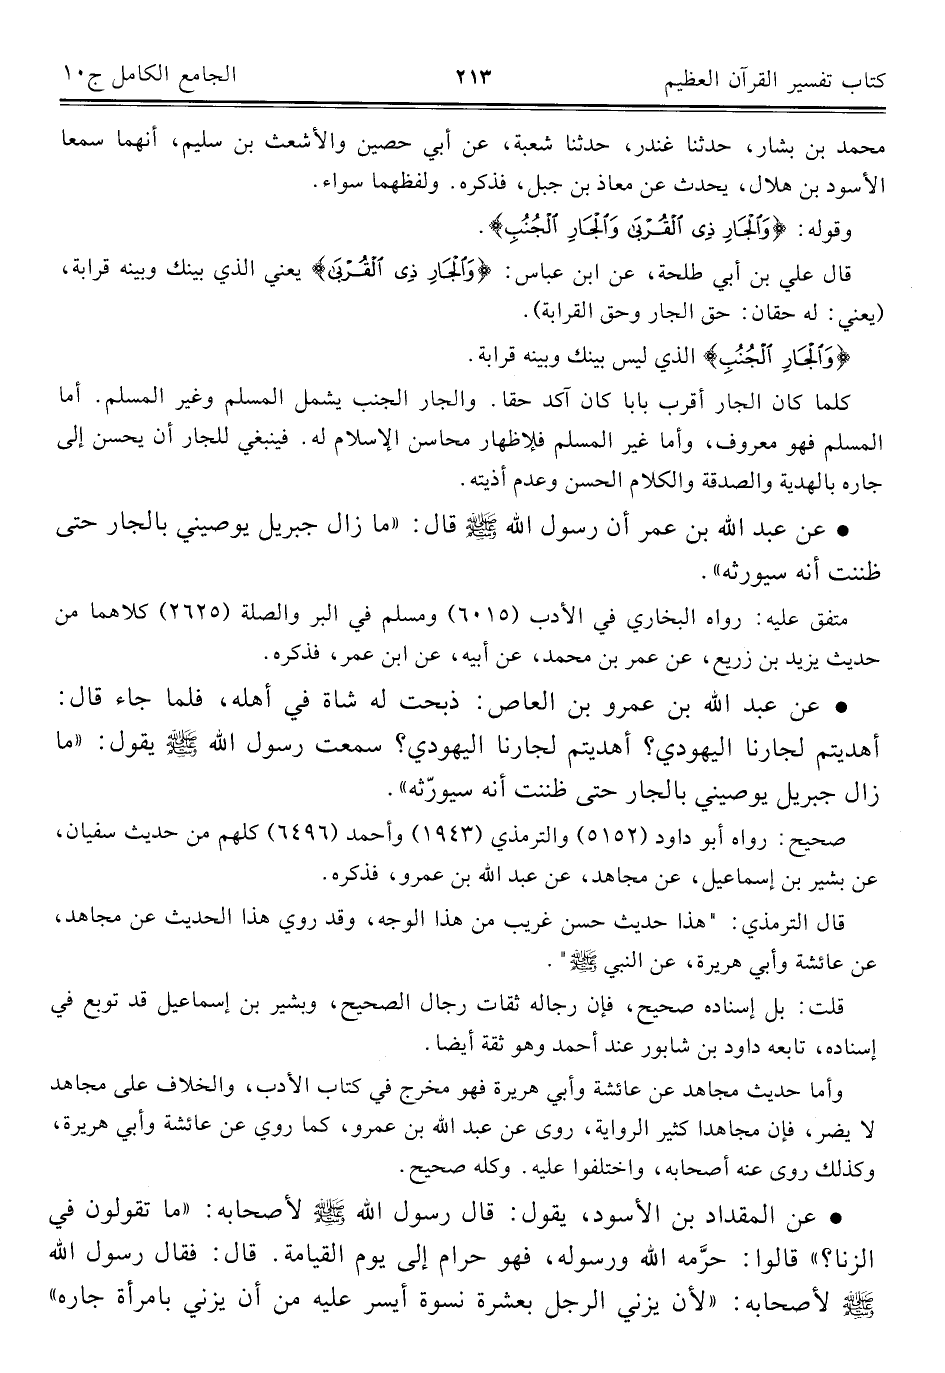 كتاب تفسير القرآن العظيم ٢١٣ الجامع الكامل ج١٠
محمد بن بشار، حدثنا غندر، حدثنا شعبة، عن أبي حصين والأشعث بن سليم، أنهما سمعا
الأسود بن هلال، يحدث عن معاذ بن جبل، فذكره. ولفظهما سواء.
وقوله: ﴿وَٱلْجَارِ ذِى ٱلْقُرْبَىٰ وَٱلْجَارِ ٱلْجُنُبِ﴾.
قال علي بن أبي طلحة، عن ابن عباس: ﴿وَٱلْجَارِ ذِى ٱلْقُرْبَىٰ﴾ يعني الذي بينك وبينه قرابة،
(يعني: له حقان: حق الجار وحق القرابة).
﴿وَٱلْجَارِ ٱلْجُنُبِ﴾ الذي ليس بينك وبينه قرابة.
كلما كان الجار أقرب بابا كان آكد حقا. والجار الجنب يشمل المسلم وغير المسلم. أما
المسلم فهو معروف، وأما غير المسلم فلاظهار محاسن الإسلام له. فينبغي للجار أن يحسن إلى
جاره بالهدية والصدقة والكلام الحسن وعدم أذيته.
• عن عبد الله بن عمر أن رسول الله ﷺ قال: «ما زال جبريل يوصيني بالجار حتى
ظننت أنه سيورثه».
متفق عليه: رواه البخاري في الأدب (٦٠١٥) ومسلم في البر والصلة (٢٦٢٥) كلاهما من
حديث يزيد بن زريع، عن عمر بن محمد، عن أبيه، عن ابن عمر، فذكره.
• عن عبد الله بن عمرو بن العاص: ذبحت له شاة في أهله، فلما جاء قال:
أهديتم لجارنا اليهودي؟ أهديتم لجارنا اليهودي؟ سمعت رسول الله ﷺ يقول: «ما
زال جبريل يوصيني بالجار حتى ظننت أنه سيورّثه».
صحيح: رواه أبو داود (٥١٥٢) والترمذي (١٩٤٣) وأحمد (٦٤٩٦) كلهم من حديث سفيان،
عن بشير بن إسماعيل، عن مجاهد، عن عبد الله بن عمرو، فذكره.
قال الترمذي: "هذا حديث حسن غريب من هذا الوجه، وقد روي هذا الحديث عن مجاهد،
عن عائشة وأبي هريرة، عن النبي ﷺ".
قلت: بل إسناده صحيح، فإن رجاله ثقات رجال الصحيح، وبشير بن إسماعيل قد توبع في
إسناده، تابعه داود بن شابور عند أحمد وهو ثقة أيضا.
وأما حديث مجاهد عن عائشة وأبي هريرة فهو مخرج في كتاب الأدب، والخلاف على مجاهد
لا يضر، فإن مجاهدا كثير الرواية، روى عن عبد الله بن عمرو، كما روي عن عائشة وأبي هريرة،
وكذلك روى عنه أصحابه، واختلفوا عليه. وكله صحيح.
• عن المقداد بن الأسود، يقول: قال رسول الله ﷺ لأصحابه: «ما تقولون في
الزنا؟» قالوا: حرَّمه الله ورسوله، فهو حرام إلى يوم القيامة. قال: فقال رسول الله
ﷺ لأصحابه: «لأن يزني الرجل بعشرة نسوة أيسر عليه من أن يزني بامرأة جاره»